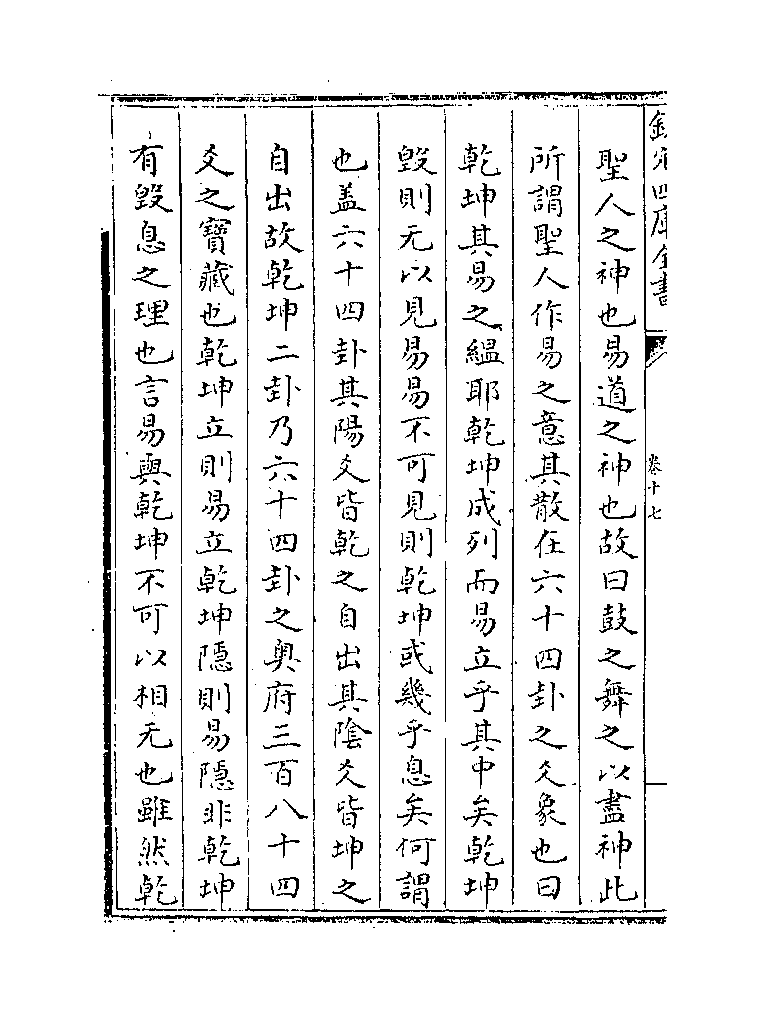 欽定四庫全書
卷十七
聖人之神也易道之神也故曰鼓之舞之以盡神此
所謂聖人作易之意其散在六十四卦之爻象也曰
乾坤其易之緼耶乾坤成列而易立乎其中矣乾坤
毀則无以見易易不可見則乾坤或幾乎息矣何謂
也盖六十四卦其陽爻皆乾之自出其陰爻皆坤之
自出故乾坤二卦乃六十四卦之奥府三百八十四
爻之寶藏也乾坤立則易立乾坤隱則易隱非乾坤
有毀息之理也言易與乾坤不可以相无也雖然乾